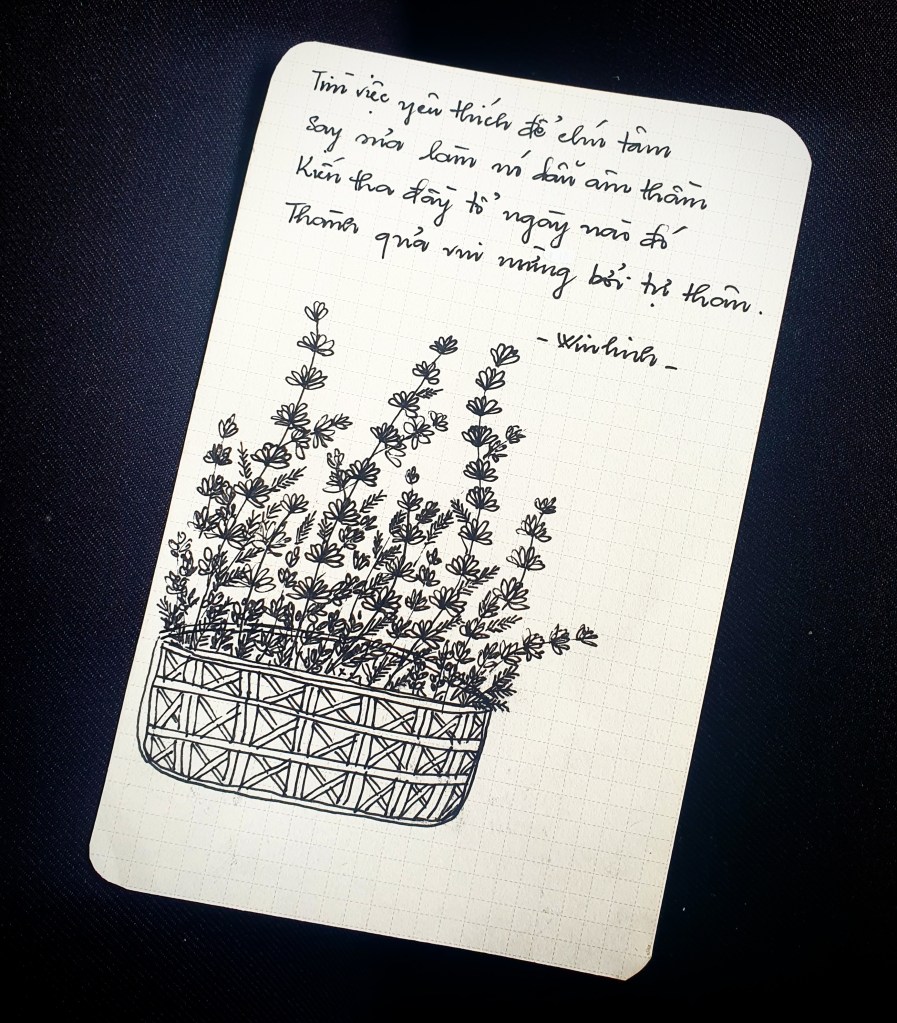 Tìm việc yêu thích để chú tâm
Say sưa làm nó dẫu âm thầm
Kiến tha đầy tổ ngày nào đó
Thành quả vui mừng bởi tự thân.
- Winhinh -